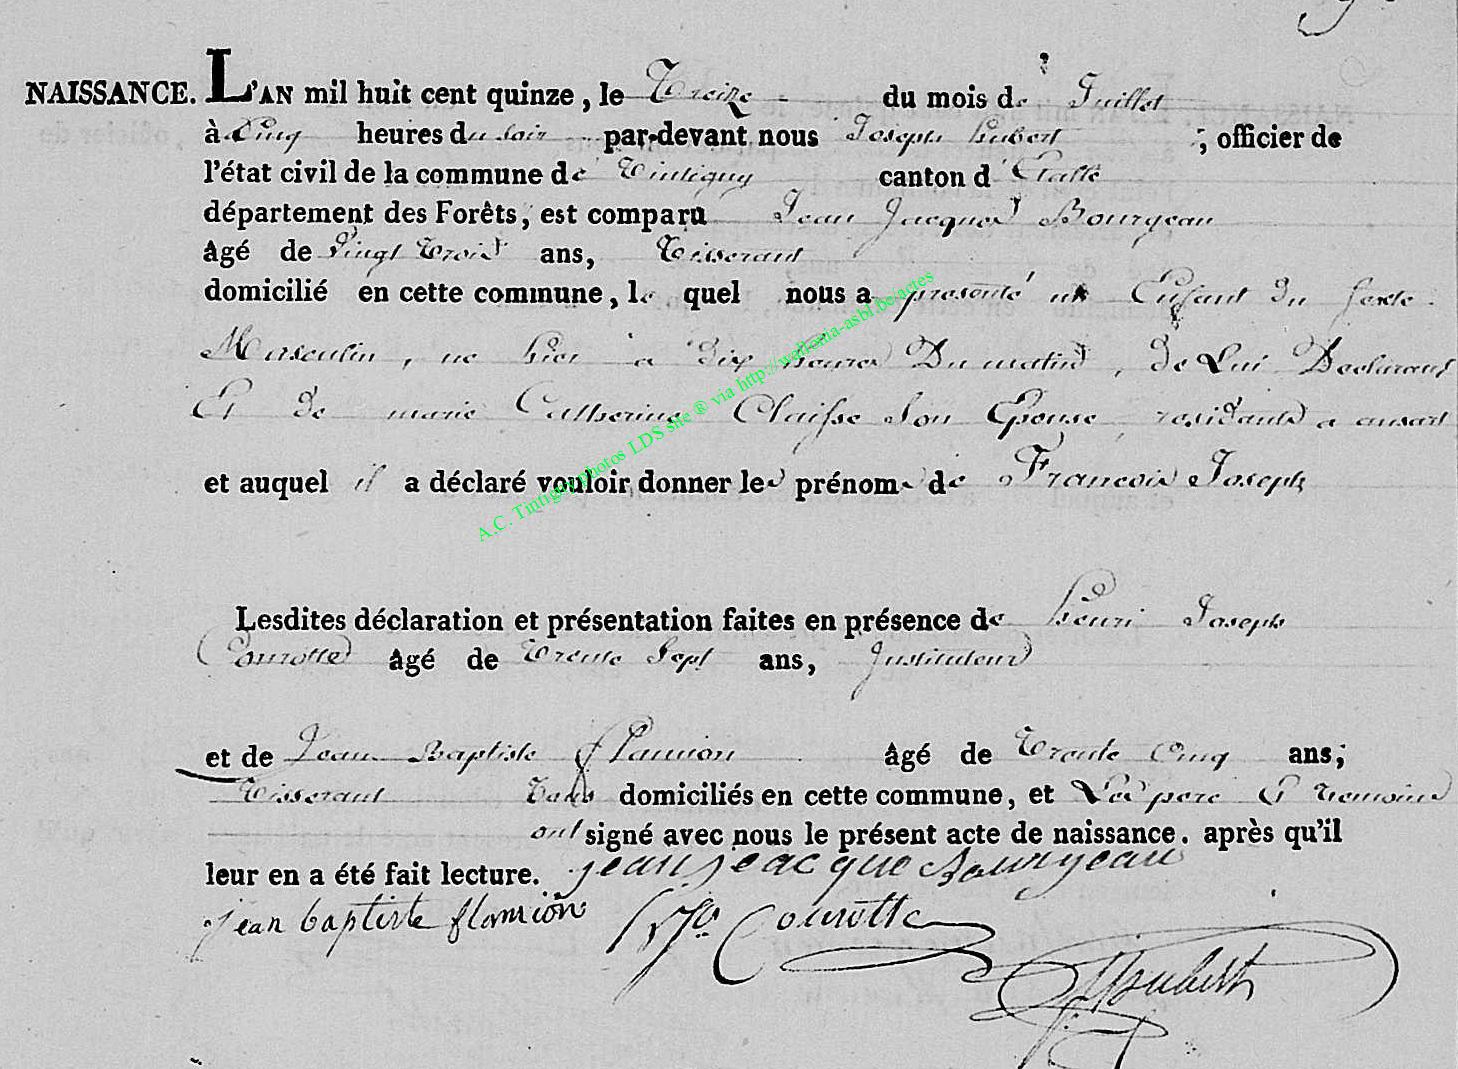 NAISSANCE. L'AN mil huit cent quinze, le Treize du mois de Juillet
à Cinq heures du soir par-devant nous Joseph hubert ; officier de
l'état civil de la commune de Tintigny canton d'Etalle
département des Forêts, est comparu Jean Jacques Bourgeau
âgé de Vingt Trois ans, Tisserant
domicilié en cette commune, le quel nous a presenté un Enfant du sexe
Masculin, né hier a dix heures Du matin, de Lui Declarant
Et de marie Catherine Claisse Son Epouse, residants a ansart
et auquel il a déclaré vouloir donner les prénoms de Francois Joseph
A.C. Tintigny photos LDS site ® via http://wallonia-asbl.be/actes
Lesdites déclaration et présentation faites en présence de henri Joseph
Courotte âgé de Trente Sept ans, Instituteur
et de Jean Baptiste flamion âgé de Trente Cinq ans;
Tisserant Tous domiciliés en cette commune, et Les pere Et temoins
ont signé avec nous le présent acte de naissance. après qu'il
leur en a été fait lecture. jean jeacque Bourgeau
jean baptiste flamion Courotte
Hubert